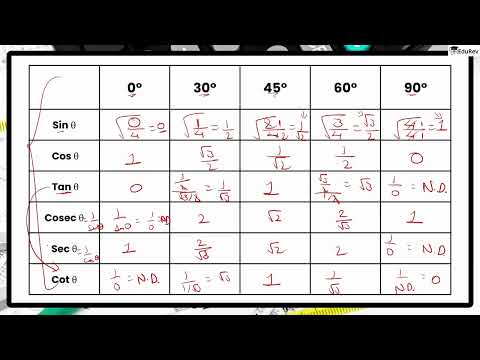 EduRev
0° 30° 45° 60° 90°
Sin θ √0/4 = 0 √1/4 = 1/2 √2/4 = 1/√2 √3/4 = √3/2 √4/4 = 1
Cos θ 1 √3/2 1/√2 1/2 0
Tan θ 0 1/2/√3/2 = 1/√3 1 √3/2/1/2 = √3 1/0 = N.D.
Cosec θ = 1/sinθ 1/sin0 = 1/0 = N.D. 2 √2 2/√3 1
Sec θ = 1/cosθ 1 2/√3 √2 2 1/0 = N.D.
Cot θ 1/0 = N.D. 1/1/√3 = √3 1 1/√3 1/N.D. = 0